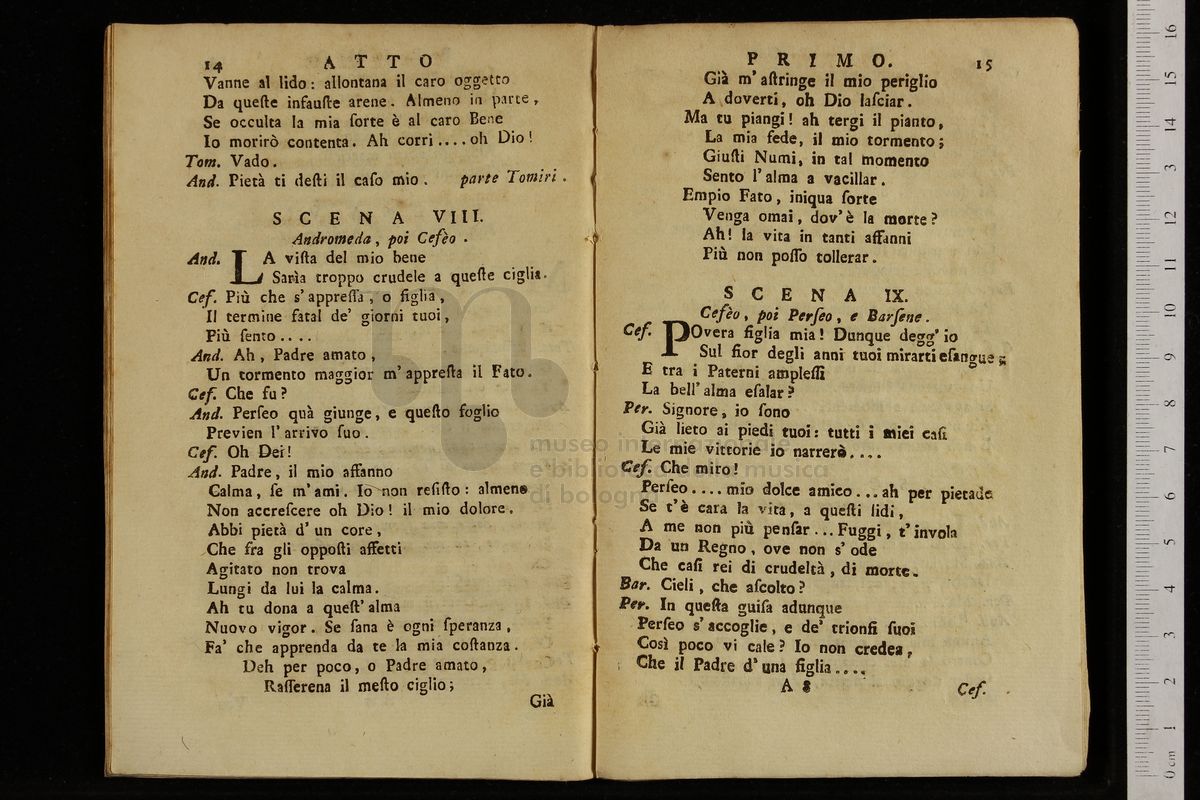 14 ATTO
Vanne al lido: allontana il caro oggetto
Da queſte infauſte arene. Almeno in parte,
Se occulta la mia ſorte è al caro Bene
Io morirò contenta. Ah corri....oh Dio!
Tom. Vado.
And. Pietà ti deſti il caſo mio. parte Tomiri.
SCENA VIII.
Andromeda, poi Cefèo.
And. LA viſta del mio bene
Sarìa troppo crudele a queſte ciglia.
Cef. Più che s'appreſſa, o figlia,
Il termine fatal de' giorni tuoi,
Più ſento....
And. Ah, Padre amato,
Un tormento maggior m'appreſta il Fato.
Cef. Che fu?
And. Perſeo quà giunge, e queſto foglio
Previen l'arrivo ſuo.
Cef. Oh Dei!
And. Padre, il mio affanno
Calma, ſe m'ami. Io non reſiſto: almeno
Non accreſcere oh Dio! il mio dolore.
Abbi pietà d'un core,
Che fra gli oppoſti affetti
Agitato non trova
Lungi da lui la calma.
Ah tu dona a queſt'alma
Nuovo vigor. Se ſana è ogni ſperanza,
Fa' che apprenda da te la mia coſtanza.
Deh per poco, o Padre amato,
Raſſerena il meſto ciglio;
Già
PRIMO. 15
Già m'aſtringe il mio periglio
A doverti, oh Dio laſciar.
Ma tu piangi! ah tergi il pianto,
La mia fede, il mio tormento;
Giuſti Numi, in tal momento
Sento l'alma a vacillar.
Empio Fato, iniqua ſorte
Venga omai, dov'è la morte?
Ah! la vita in tanti affanni
Più non poſſo tollerar.
SCENA IX.
Cefèo, poi Perſeo, e Barſene.
Cef. POvera figlia mia! Dunque degg'io
Sul fior degli anni tuoi mirarti eſangue;
E tra i Paterni ampleſſi
La bell'alma eſalar?
Per. Signore, io ſono
Già lieto ai piedi tuoi: tutti i miei caſi
Le mie vittorie io narrerò....
Cef. Che miro!
Perſeo....mio dolce amico...ah per pietade
Se t'è cara la vita, a queſti lidi,
A me non più penſar...Fuggi, t'invola
Da un Regno, ove non s'ode
Che caſi rei di crudeltà, di morte.
Bar. Cieli, che aſcolto?
Per. In queſta guiſa adunque
Perſeo s'accoglie, e de' trionfi ſuoi
Così poco vi cale? Io non credea,
Che il Padre d'una figlia....
A 8 Cef.
museo internazionale
e biblioteca della musica
di bologna
0 cm 1 2 3 4 5 6 7 8 9 10 11 12 13 14 15 16